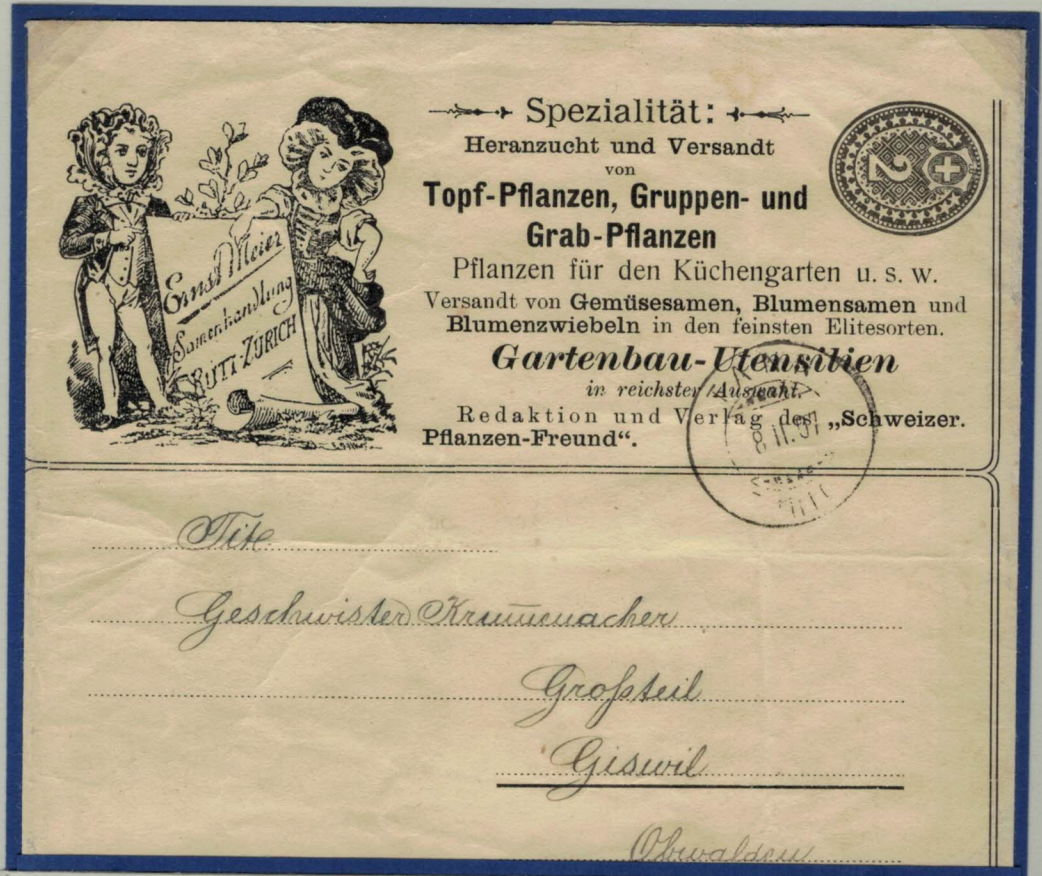 Ernst Meier
Samenhandlung
RÜTI-ZÜRICH
Spezialität:
Heranzucht und Versandt
von
Topf-Pflanzen, Gruppen- und
Grab-Pflanzen
Pflanzen für den Küchengarten u. s. w.
Versandt von Gemüsesamen, Blumensamen und
Blumenzwiebeln in den feinsten Elitesorten.
Gartenbau-Utensilien
in reichster Auswahl.
Redaktion und Verlag des „Schweizer.
Pflanzen-Freund“.
2
Tit.
Geschwister Krum̅enacher
Großteil
Giswil
Obwalden